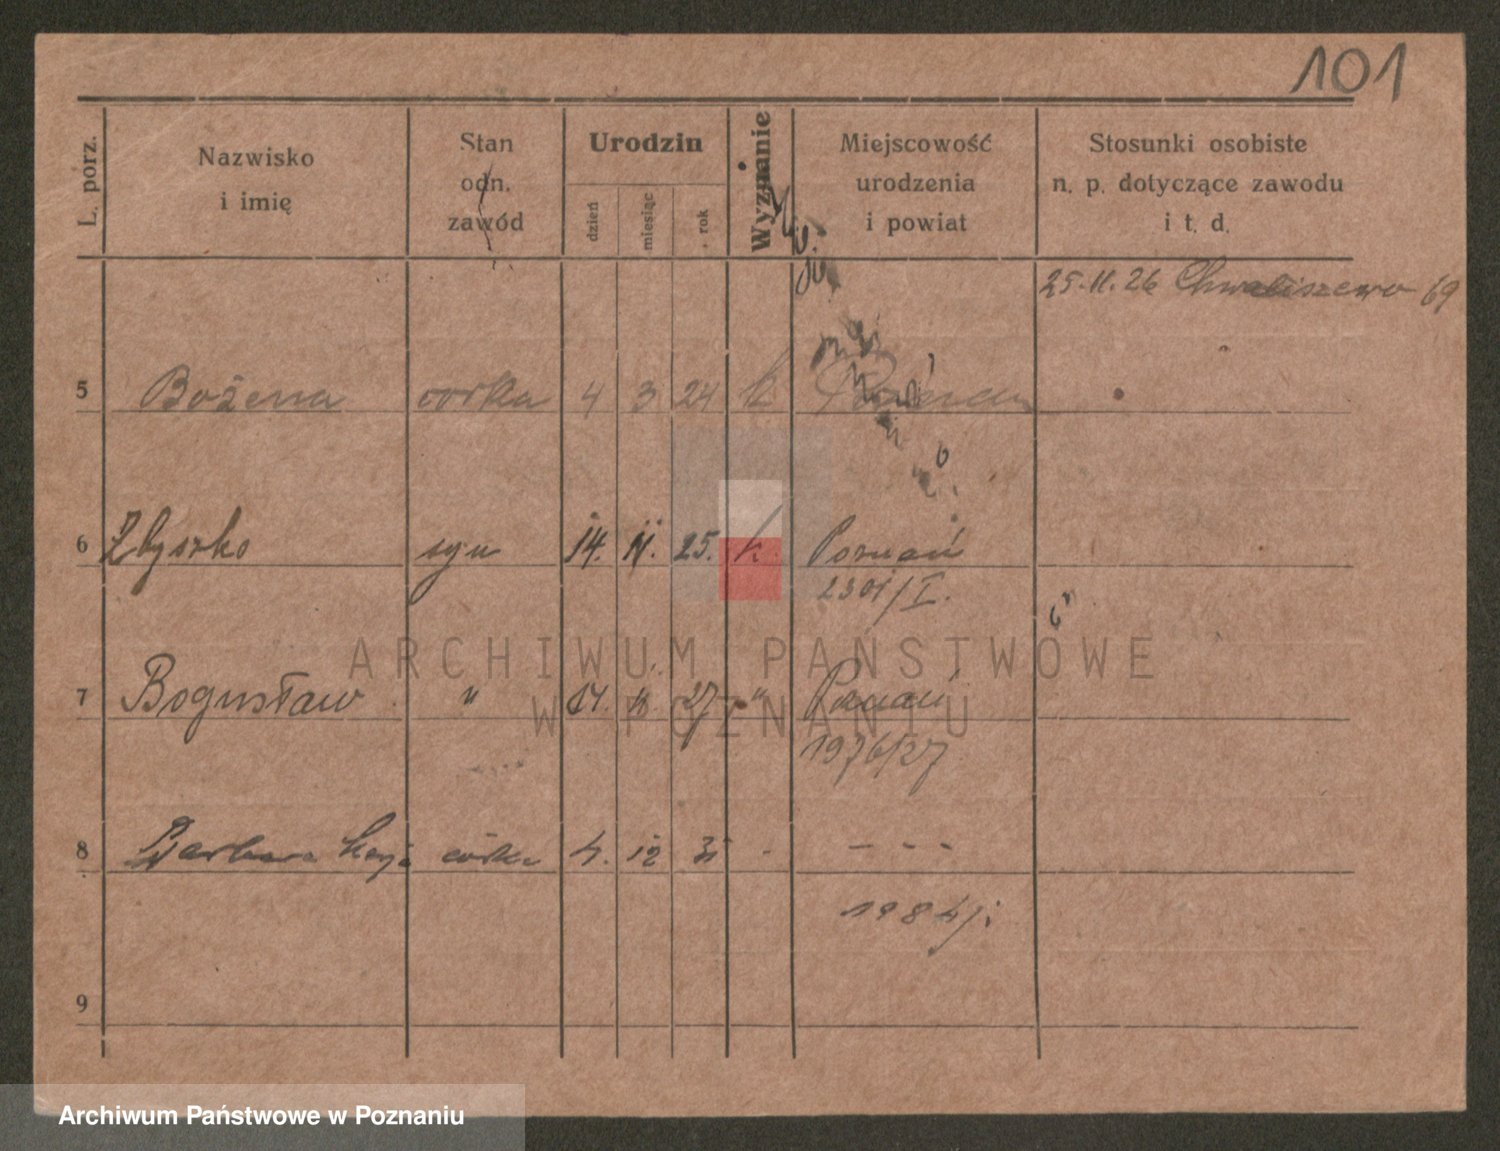 101
L. porz.
Nazwisko
i imię
Stan
odn.
zawód
Urodzin
dzień
miesiąc
rok
Wyznanie
Miejscowość
urodzenia
i powiat
Stosunki osobiste
n. p. dotyczące zawodu
i t. d.
25.11.26 Chwaliszewo 69
5 Bożena córka 4 3 24 k Poznań
6 Zbyszko syn 14. 11. 25. k. Poznań
2301/I.
ARCHIWUM PAŃSTWOWE
W POZNANIU
7 Bogusław " 14. 27 " Poznań
1976/27
8 Barbara córka 4. 12 31 - - - - -
1984/
9
Archiwum Państwowe w Poznaniu